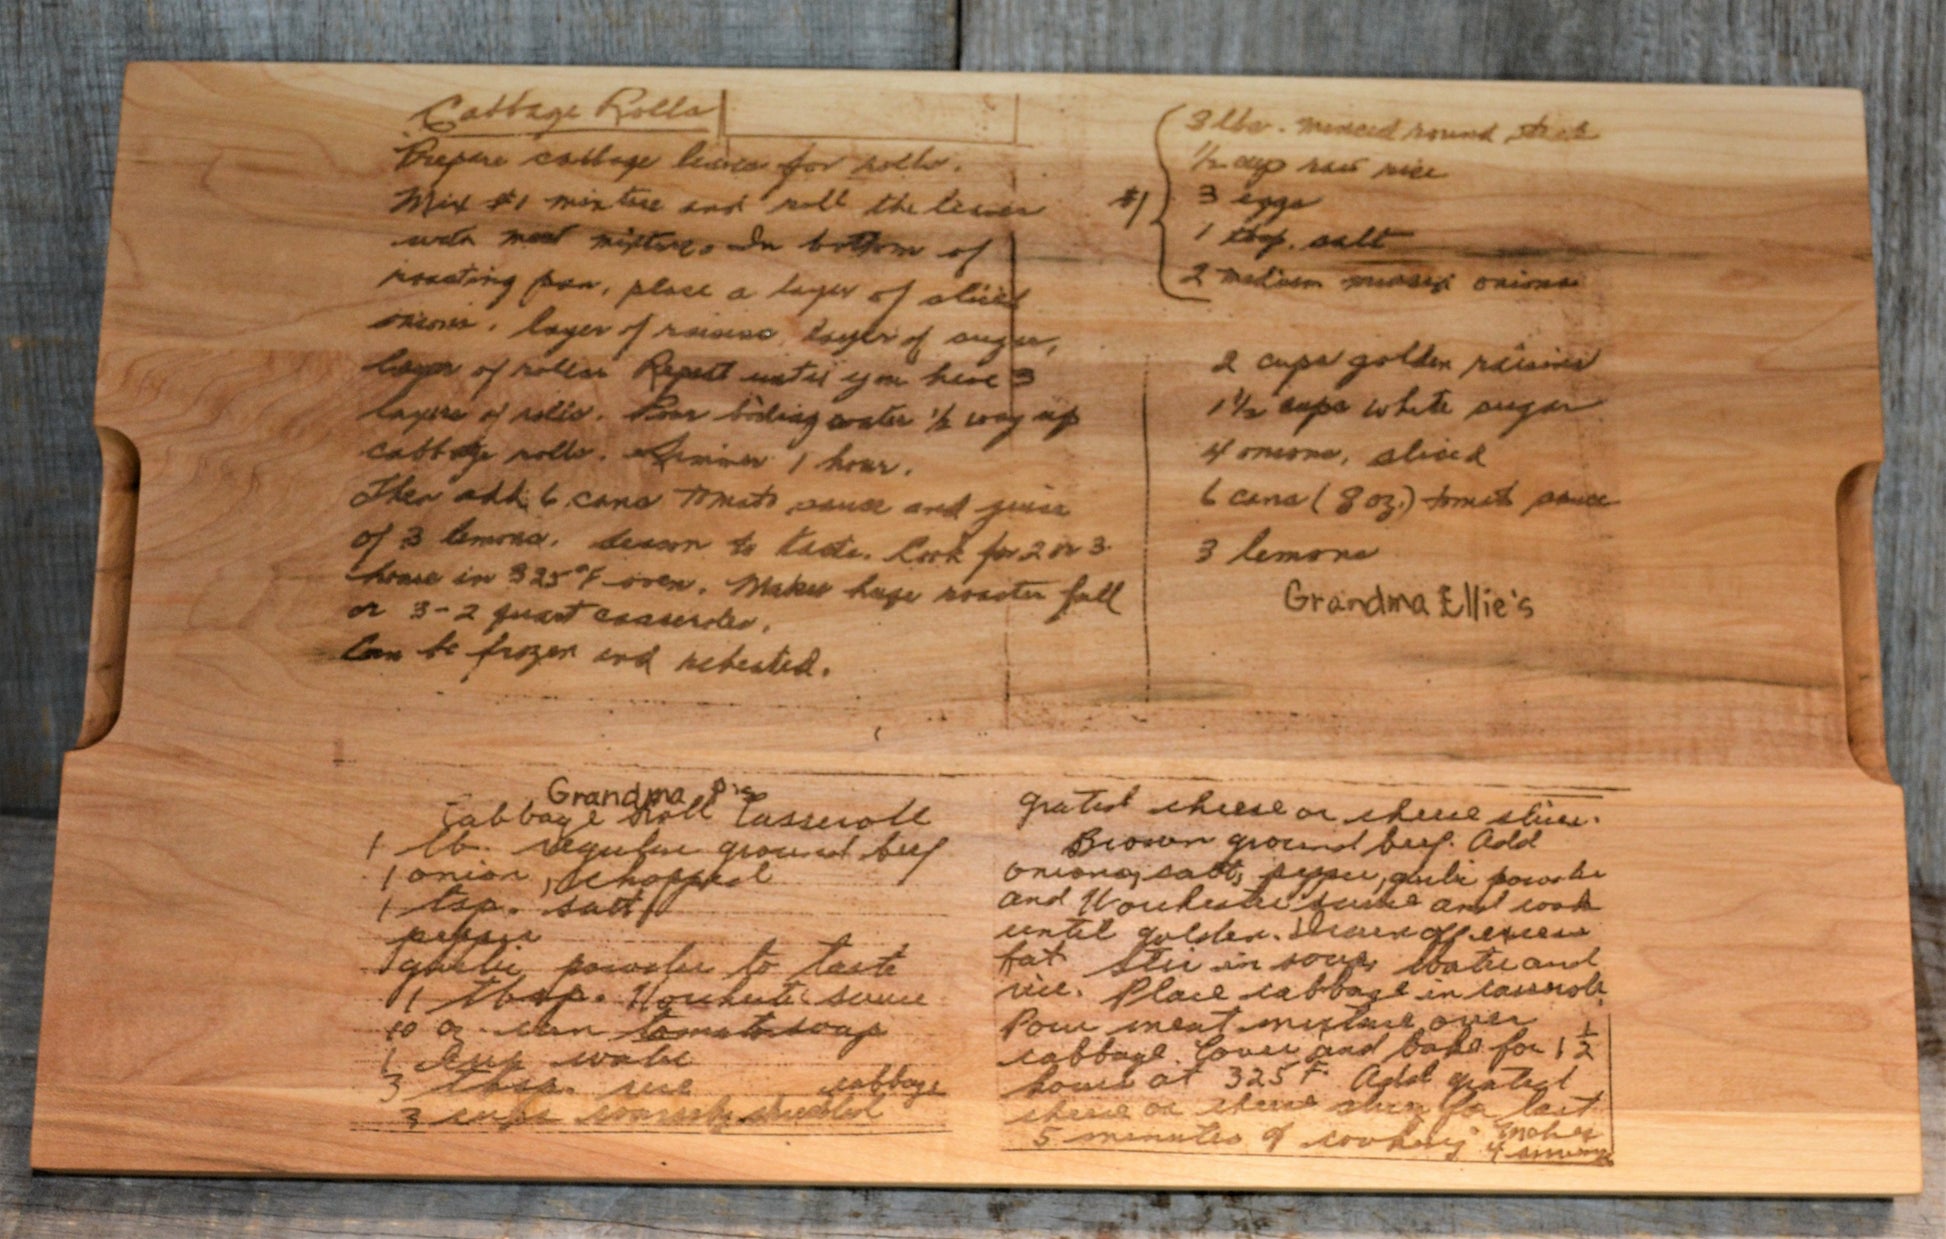 Cabbage Rolls
Prepare cabbage leaves for rolls.
Mix #1 mixture and roll the leaves
with meat mixture. In bottom of
roasting pan, place a layer of sliced
onions, layer of raisins, layer of sugar,
layer of rolls. Repeat until you have 3
layers of rolls. Pour boiling water 1/2 way up
cabbage rolls. Simmer 1 hour.
Then add 6 cans tomato sauce and juice
of 3 lemons. Season to taste. Cook for 2 or 3
hours in 325°F oven. Makes huge roaster full
or 3-2 quart casseroles.
Can be frozen and reheated.
#1
3 lbs. minced round steak
1/2 cup raw rice
3 eggs
1 tbsp. salt
2 medium onions
2 cups golden raisins
1 1/2 cups white sugar
4 onions, sliced
6 cans (8 oz.) tomato sauce
3 lemons
Grandma Ellie's
Grandma P's
Cabbage Roll Casserole
1 lb. regular ground beef
1 onion, chopped
1 tsp. salt
pepper
garlic powder to taste
1 tbsp. Worchester sauce
10 oz can tomato soup
1 cup water
3 tbsp. rice
3 cups coarsely shredded cabbage
grated cheese or cheese slices.
Brown ground beef. Add
onions, salt, pepper, garlic powder
and Worchester sauce and cook
until golden. Drain off excess
fat. Stir in soup, water and
rice. Place cabbage in casserole.
Pour meat mixture over
cabbage. Cover and bake for 1 1/2
hours at 325°F. Add grated
cheese or cheese slices for last
5 minutes of cooking. Makes
4 servings